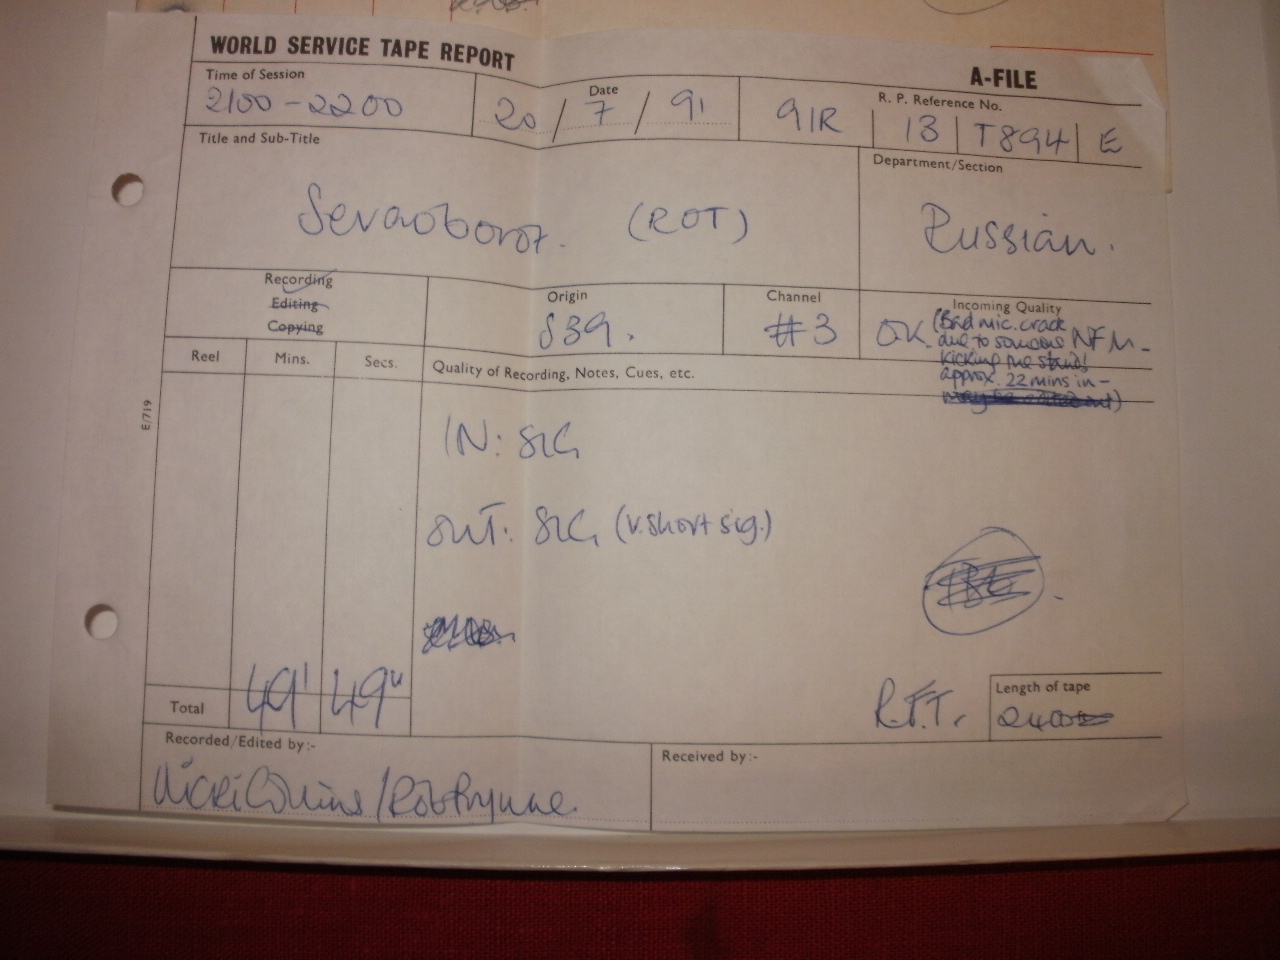 WORLD SERVICE TAPE REPORT
A-FILE
Time of Session
2100-2200
Date
20/7/91
R. P. Reference No.
91R 13 T894 E
Title and Sub-Title
Sevaoborot. (ROT)
Department/Section
Russian.
Recording
Editing
Copying
Origin
S39.
Channel
#3
Incoming Quality
OK (Bad mic. crack
due to someone NFM-
kicking the stand!
approx. 22 mins in-
Reel
Mins.
Secs.
Quality of Recording, Notes, Cues, etc.
IN: SIG
OUT: SIG (v. short sig.)
E/719
Total
49' 49"
R.F.T.
Length of tape
2400
Recorded/Edited by:-
Received by:-